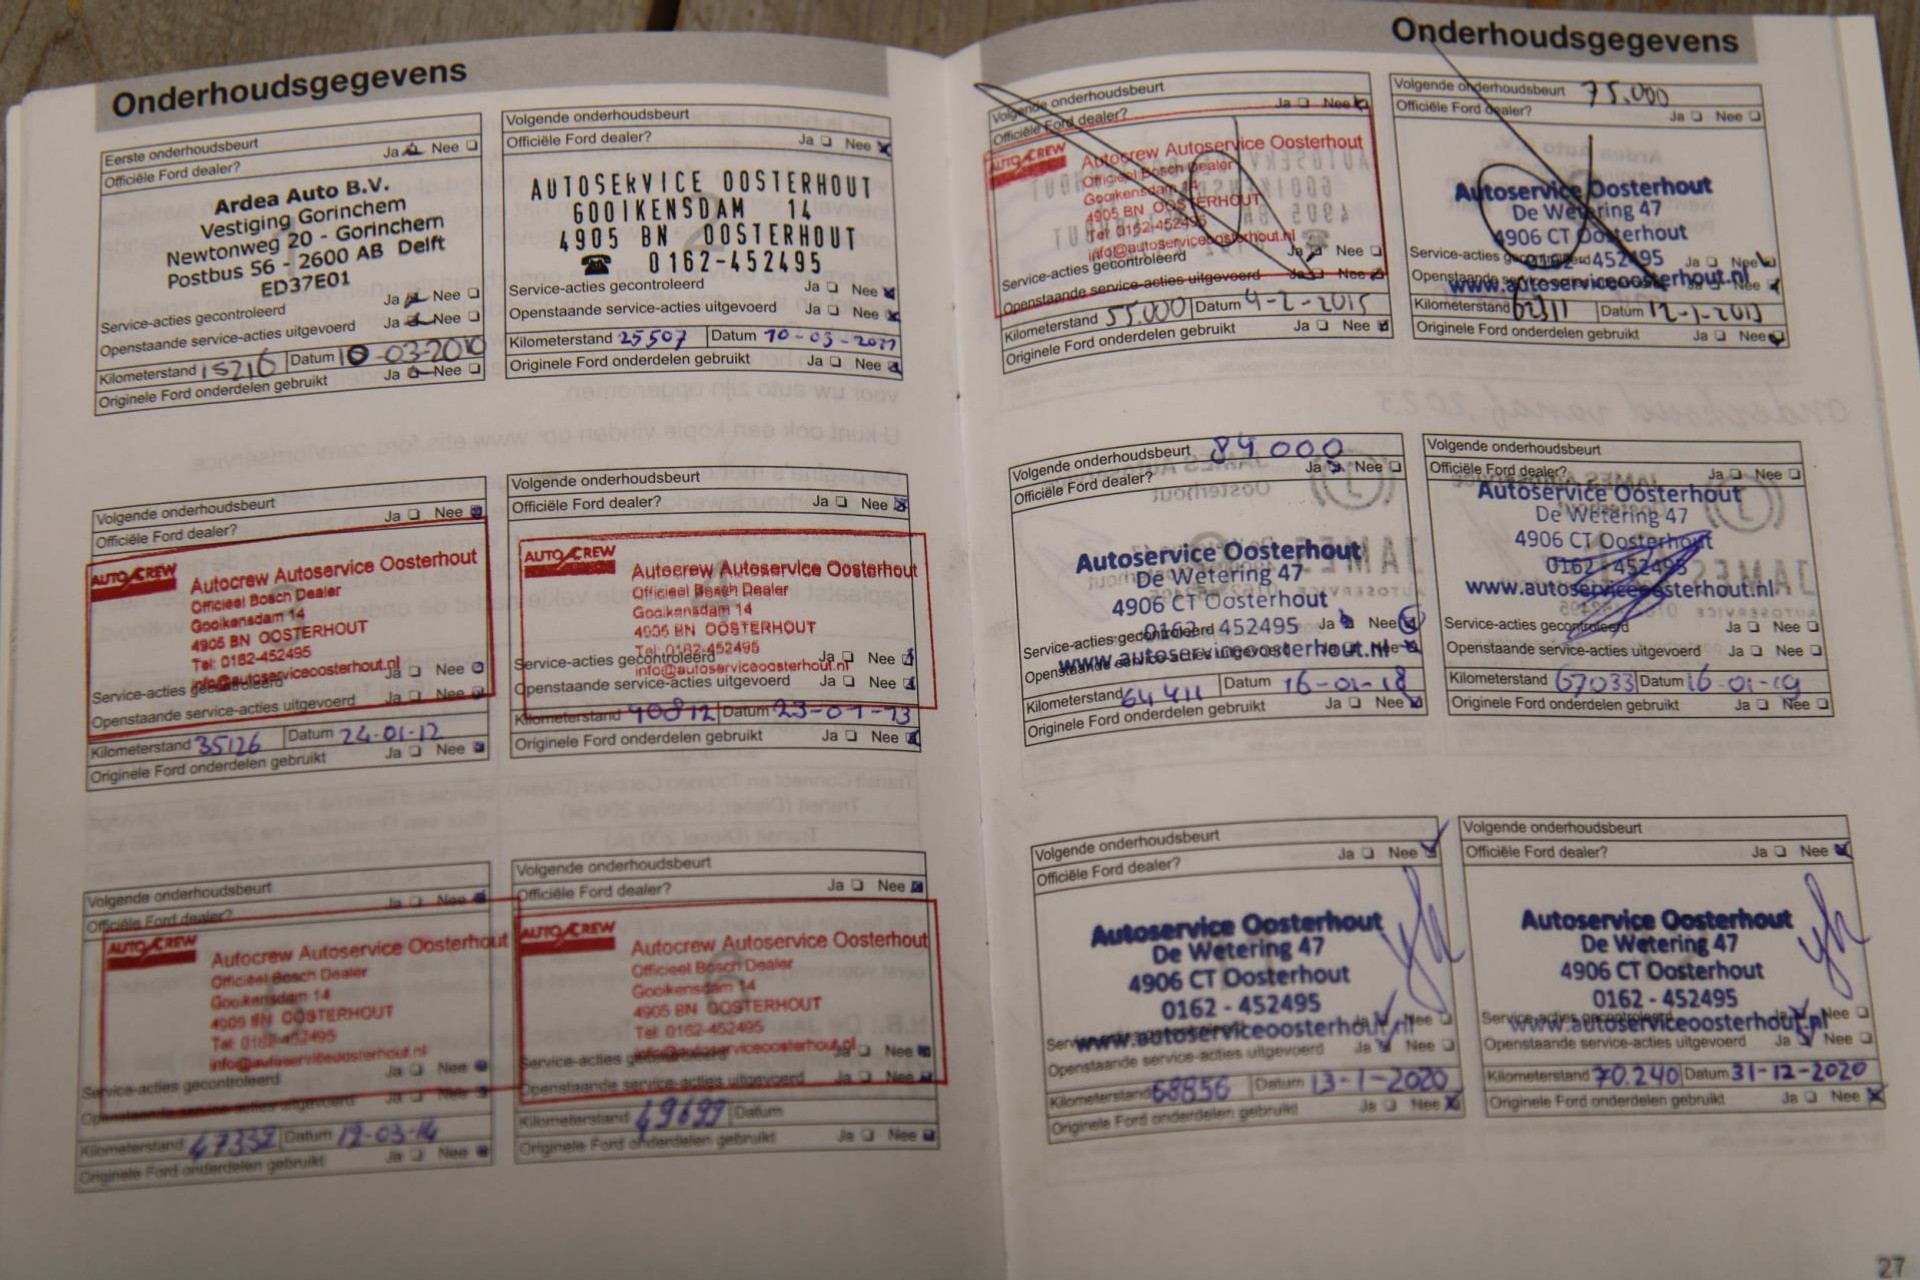 Onderhoudsgegevens
Eerste onderhoudsbeurt
Officiële Ford dealer? Ja Nee
Ardea Auto B.V.
Vestiging Gorinchem
Newtonweg 20 - Gorinchem
Postbus 56 - 2600 AB Delft
ED37E01
Service-acties gecontroleerd Ja Nee
Openstaande service-acties uitgevoerd Ja Nee
Kilometerstand 15216 Datum 10-03-2010
Originele Ford onderdelen gebruikt Ja Nee
Volgende onderhoudsbeurt
Officiële Ford dealer? Ja Nee
AUTOSERVICE OOSTERHOUT
GOOIKENSDAM 14
4905 BN OOSTERHOUT
☎ 0162-452495
Service-acties gecontroleerd Ja Nee
Openstaande service-acties uitgevoerd Ja Nee
Kilometerstand 25507 Datum 10-03-2011
Originele Ford onderdelen gebruikt Ja Nee
Volgende onderhoudsbeurt
Officiële Ford dealer? Ja Nee
AUTO CREW
Autocrew Autoservice Oosterhout
Officieel Bosch Dealer
Gooikensdam 14
4905 BN OOSTERHOUT
Tel: 0162-452495
info@autoserviceoosterhout.nl
Service-acties gecontroleerd Ja Nee
Openstaande service-acties uitgevoerd Ja Nee
Kilometerstand 35126 Datum 24-01-12
Originele Ford onderdelen gebruikt Ja Nee
Volgende onderhoudsbeurt
Officiële Ford dealer? Ja Nee
AUTO CREW
Autocrew Autoservice Oosterhout
Officieel Bosch Dealer
Gooikensdam 14
4905 BN OOSTERHOUT
Tel: 0162-452495
info@autoserviceoosterhout.nl
Service-acties gecontroleerd Ja Nee
Openstaande service-acties uitgevoerd Ja Nee
Kilometerstand 40812 Datum 23-01-13
Originele Ford onderdelen gebruikt Ja Nee
Volgende onderhoudsbeurt
Officiële Ford dealer? Ja Nee
AUTO CREW
Autocrew Autoservice Oosterhout
Officieel Bosch Dealer
Gooikensdam 14
4905 BN OOSTERHOUT
Tel: 0162-452495
info@autoserviceoosterhout.nl
Service-acties gecontroleerd Ja Nee
Openstaande service-acties uitgevoerd Ja Nee
Kilometerstand 47332 Datum 12-03-14
Originele Ford onderdelen gebruikt Ja Nee
Volgende onderhoudsbeurt
Officiële Ford dealer? Ja Nee
AUTO CREW
Autocrew Autoservice Oosterhout
Officieel Bosch Dealer
Gooikensdam 14
4905 BN OOSTERHOUT
Tel: 0162-452495
info@autoserviceoosterhout.nl
Service-acties gecontroleerd Ja Nee
Openstaande service-acties uitgevoerd Ja Nee
Kilometerstand 49699 Datum
Originele Ford onderdelen gebruikt Ja Nee
Onderhoudsgegevens
Volgende onderhoudsbeurt
Officiële Ford dealer? Ja Nee
AUTO CREW
Autocrew Autoservice Oosterhout
Officieel Bosch Dealer
Gooikensdam 14
4905 BN OOSTERHOUT
Tel: 0162-452495
info@autoserviceoosterhout.nl
Service-acties gecontroleerd Ja Nee
Openstaande service-acties uitgevoerd Ja Nee
Kilometerstand 55.000 Datum 4-2-2015
Originele Ford onderdelen gebruikt Ja Nee
Volgende onderhoudsbeurt 75.000
Officiële Ford dealer? Ja Nee
Autoservice Oosterhout
De Wetering 47
4906 CT Oosterhout
0162 - 452495
www.autoserviceoosterhout.nl
Service-acties gecontroleerd Ja Nee
Openstaande Nee
Kilometerstand 62311 Datum
Originele Ford onderdelen gebruikt Ja Nee
Volgende onderhoudsbeurt 84.000
Officiële Ford dealer? Ja Nee
Autoservice Oosterhout
De Wetering 47
4906 CT Oosterhout
0162 - 452495
www.autoserviceoosterhout.nl
Service-acties gecontroleerd Ja Nee
Openstaande service-acties uitgevoerd Ja Nee
Kilometerstand 64411 Datum 16-01-18
Originele Ford onderdelen gebruikt Ja Nee
Volgende onderhoudsbeurt
Officiële Ford dealer? Ja Nee
Autoservice Oosterhout
De Wetering 47
4906 CT Oosterhout
0162 - 452495
www.autoserviceoosterhout.nl
Service-acties gecontroleerd Ja Nee
Openstaande service-acties uitgevoerd Ja Nee
Kilometerstand 67033 Datum 16-01-19
Originele Ford onderdelen gebruikt Ja Nee
Volgende onderhoudsbeurt
Officiële Ford dealer? Ja Nee
Autoservice Oosterhout
De Wetering 47
4906 CT Oosterhout
0162 - 452495
www.autoserviceoosterhout.nl
Ja Nee
Openstaande service-acties uitgevoerd Ja Nee
Kilometerstand 68856 Datum 13-1-2020
Originele Ford onderdelen gebruikt Ja Nee
Volgende onderhoudsbeurt
Officiële Ford dealer? Ja Nee
Autoservice Oosterhout
De Wetering 47
4906 CT Oosterhout
0162 - 452495
www.autoserviceoosterhout.nl
Service-acties gecontroleerd Ja Nee
Openstaande service-acties uitgevoerd Ja Nee
Kilometerstand 70.240 Datum 31-12-2020
Originele Ford onderdelen gebruikt Ja Nee
27